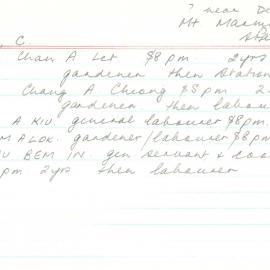 ? near Do
Mt Macm
Sta
, C.
Chan A Lot $8 pm 2yrs
gardener then Station
Chang A Cheong $8 pm 2
gardener then labour
A KIU. general labourer $8 pm.
M A LOK. gardener/labourer $8
U BEM IN. gen servant & coo
pm 2yrs then labourer